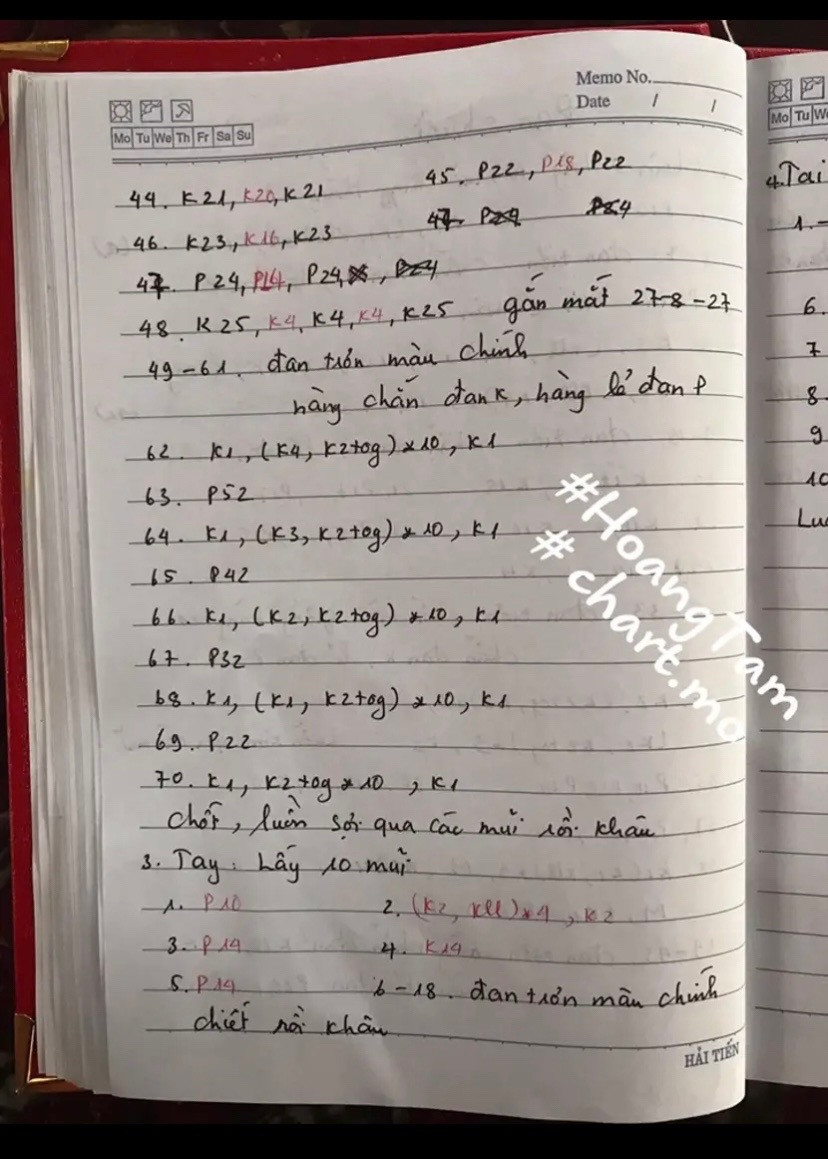 Memo No.
Date / /
Mo Tu We Th Fr Sa Su
44. K21, K20, K21
45. P22, P18, P22
46. K23, K16, K23
47. P24, P14, P24
48. K25, K4, K4, K4, K25 gắn mắt 27-8-27
49-61. đan trơn màu chính
hàng chẵn đan K, hàng lẻ đan P
62. K1, (K4, K2tog) * 10, K1
63. P52
64. K1, (K3, K2tog) * 10, K1
65. P42
66. K1, (K2, K2tog) * 10, K1
67. P32
68. K1, (K1, K2tog) * 10, K1
69. P22
70. K1, K2tog * 10, K1
chốt, luồn sợi qua các mũi rồi khâu
3. Tay: Lấy 10 mũi
1. P10
2. (K2, Kll) * 4, K2
3. P14
4. K14
5. P14
6-18. đan trơn màu chính
chiết rồi khâu
HẢI TIẾN
#HoangTam
#chart.mo
Mo Tu We
4. Tai
1.
6.
7
8
9
10